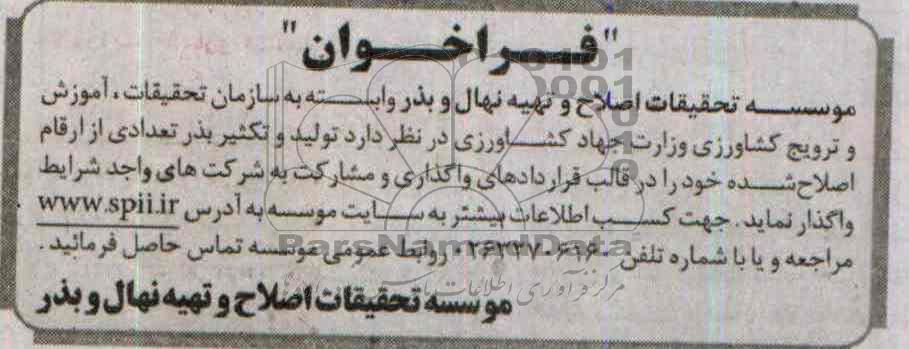 "فراخوان"
موسسه تحقیقات اصلاح و تهیه نهال و بذر وابسته به سازمان تحقیقات ، آموزش
و ترویج کشاورزی وزارت جهاد کشاورزی در نظر دارد تولید و تکثیر بذر تعدادی از ارقام
اصلاح شده خود را در قالب قراردادهای واگذاری و مشارکت به شرکت های واجد شرایط
واگذار نماید . جهت کسب اطلاعات بیشتر به سایت موسسه به آدرس www.spii.ir
مراجعه و یا با شماره تلفن روابط عمومی موسسه تماس حاصل فرمائید .
موسسه تحقیقات اصلاح و تهیه نهال و بذر
ParsNamadData
مرکز فرآوری اطلاعات